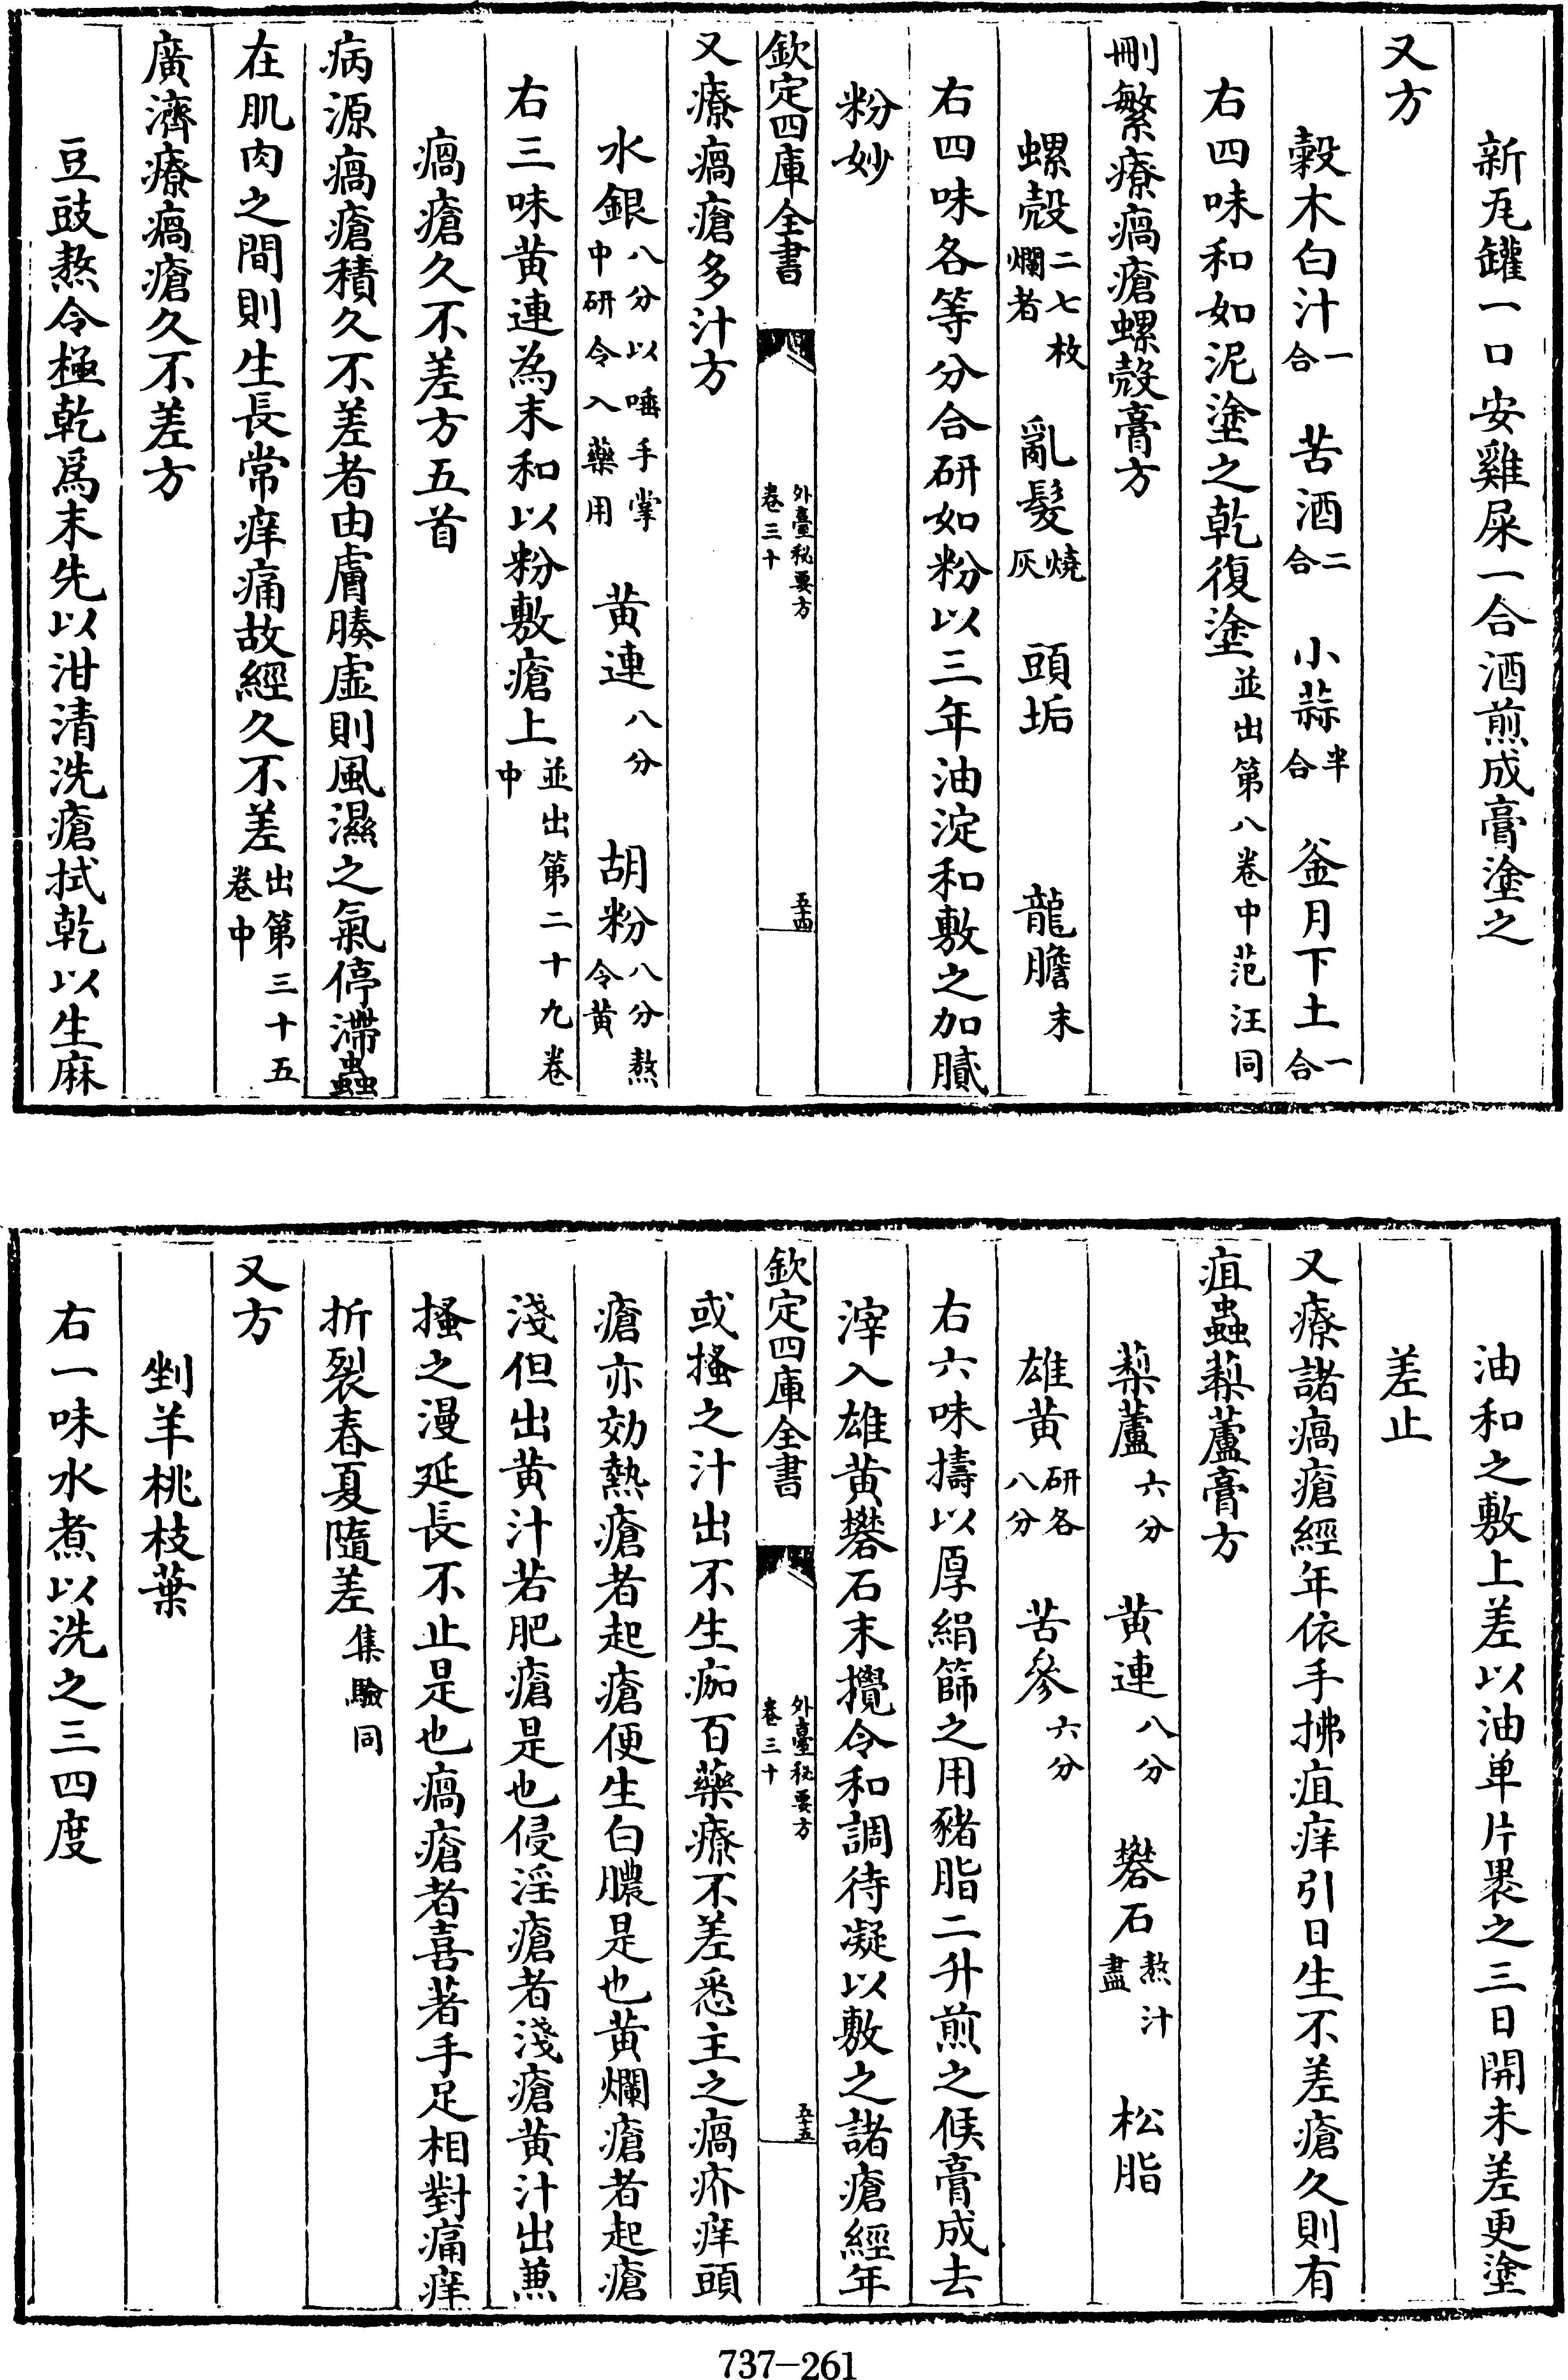 新瓦罐一口安雞屎一合酒煎成膏塗之
又方
榖木白汁一合 苦酒二合 小蒜半合 釜月下土一合
右四味和如泥塗之乾復塗並出第八卷中范汪同
刪繁療瘑瘡螺殼膏方
螺殼二七枚爛者 亂髮燒灰 頭垢 龍膽末
右四味各等分合研如粉以三年油淀和敷之加膩
粉妙
欽定四庫全書 外臺秘要方卷三十 五十四
又療瘑瘡多汁方
水銀八分以唾手掌中研令入藥用 黄連八分 胡粉八分熬令黄
右三味黄連為末和以粉敷瘡上並出第二十九卷中
瘑瘡久不差方五首
病源瘑瘡積久不差者由膚腠虚則風濕之氣停滯蟲
在肌肉之間則生長常痒痛故經久不差出第三十五卷中
廣濟療瘑瘡久不差方
豆豉熬令極乾爲末先以泔清洗瘡拭乾以生麻
油和之敷上差以油单片裹之三日開未差更塗
差止
又療諸瘑瘡經年依手拂疽痒引日生不差瘡久則有
疽蟲藜蘆膏方
藜蘆六分 黄連八分 礬石熬汁盡 松脂
雄黄研各八分 苦參六分
右六味擣以厚絹篩之用豬脂二升煎之候膏成去
滓入雄黄礬石末攪令和調待凝以敷之諸瘡經年
欽定四庫全書 外臺秘要方卷三十 五十五
或搔之汁出不生痂百藥療不差悉主之瘑疥痒頭
瘡亦効熱瘡者起瘡便生白膿是也黄爛瘡者起瘡
淺但出黄汁若肥瘡是也侵淫瘡者淺瘡黄汁出兼
搔之漫延長不止是也瘑瘡者喜著手足相對痛痒
折裂春夏隨差集驗同
又方
剉羊桃枝葉
右一味水煮以洗之三四度
737-261